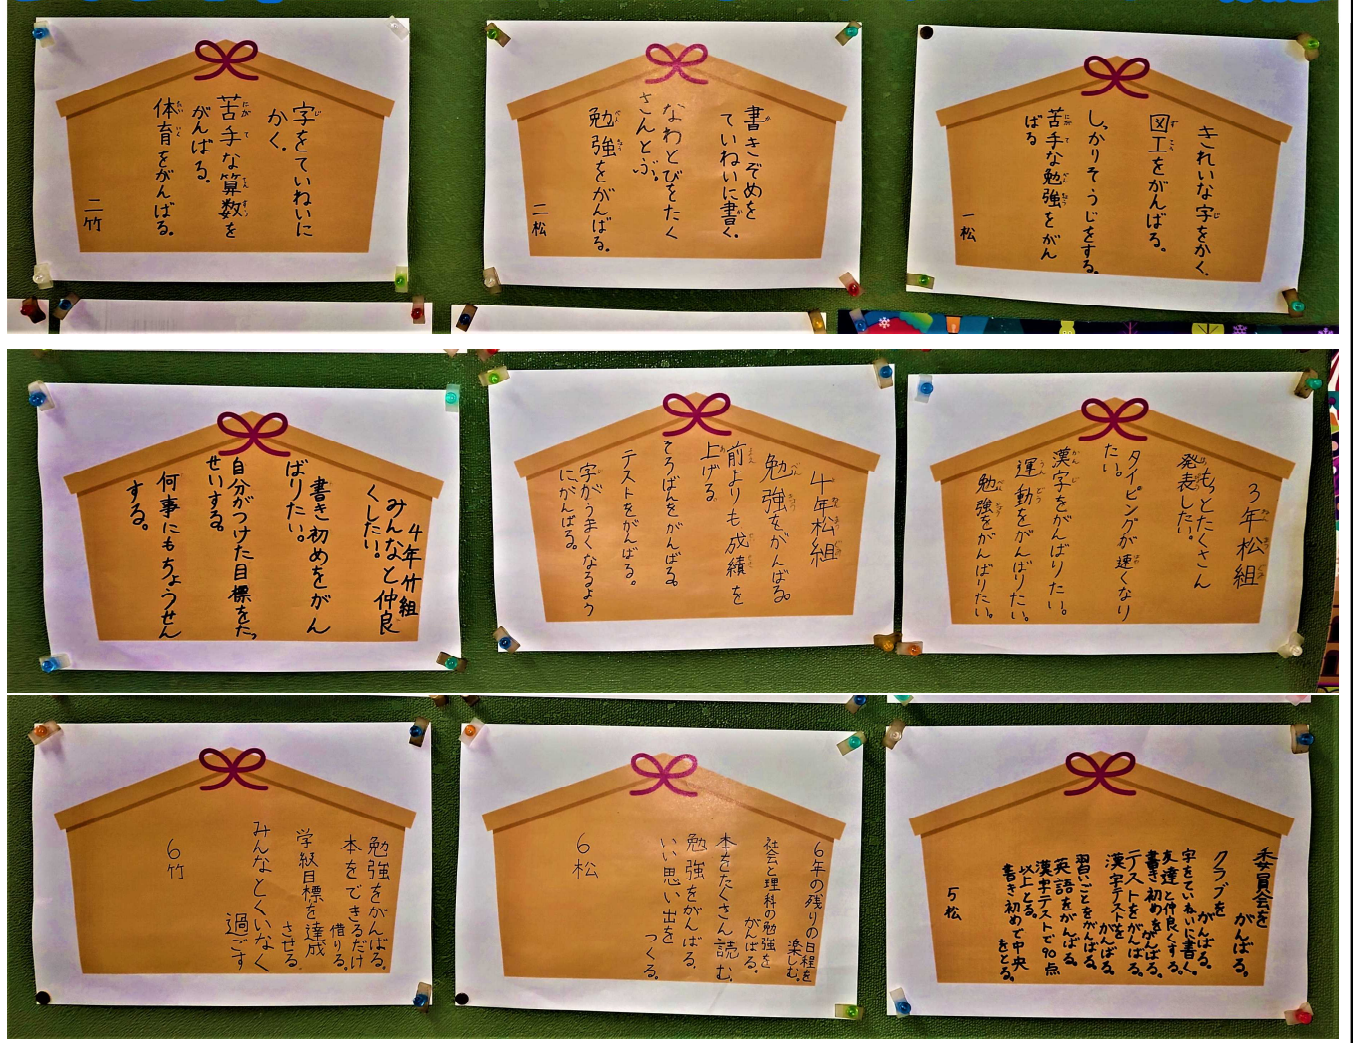 字をていねいに
かく。
苦手な算数を
がんばる。
体育をがんばる。
二竹
書きぞめを
ていねいに書く。
なわとびをたく
さんとぶ。
勉強をがんばる。
二松
きれいな字をかく。
図工をがんばる。
しっかりそうじをする。
苦手な勉強をがん
ばる
一松
4年竹組
みんなと仲良
くしたい。
書き初めをがん
ばりたい。
自分がつけた目標をたっ
せいする。
何事にもちょうせん
する。
4年松組
勉強をがんばる。
前よりも成績を
上げる。
そろばんをがんばる。
テストをがんばる。
字がうまくなるよう
にがんばる。
3年松組
もっとたくさん
発表したい。
タイピングが速くなり
たい。
漢字をがんばりたい。
運動をがんばりたい。
勉強をがんばりたい。
勉強をがんばる。
本をできるだけ
借りる。
学級目標を達成
させる。
みんなとくいなく
過ごす
6竹
6年の残りの日程を
楽しむ。
社会と理科の勉強を
がんばる。
本をたくさん読む。
勉強をがんばる。
いい思い出を
つくる。
6松
委員会を
がんばる。
クラブを
がんばる。
字をていねいに書く。
友達と仲良くする。
書き初めをがんばる。
テストをがんばる。
漢字テストを
がんばる。
習いごとをがんばる。
英語をがんばる。
漢字テストで90点
以上とる。
書き初めで中央
をとる。
5松